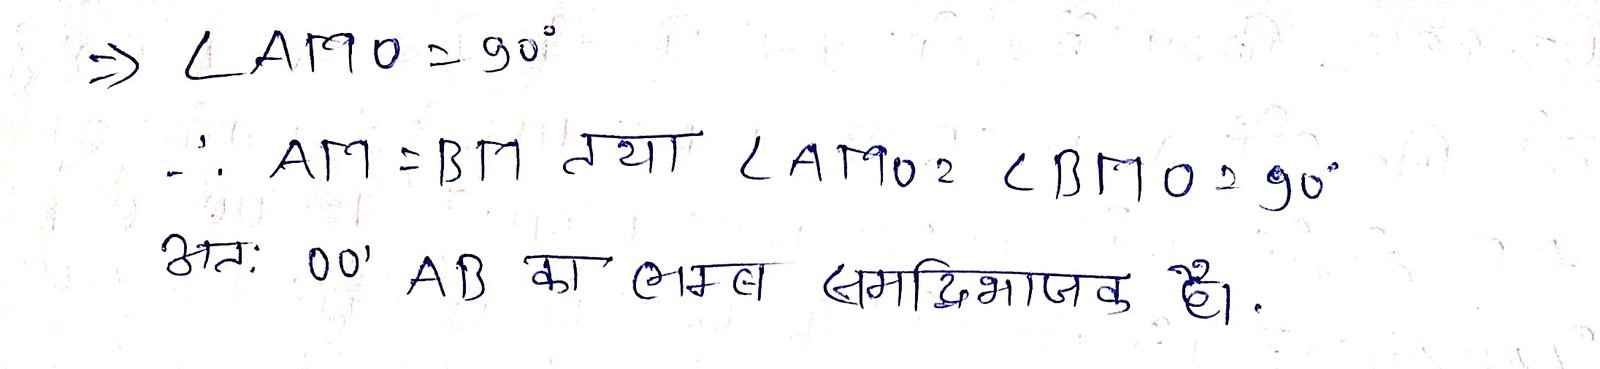 ⇒ ∠AMO = 90°
∴ AM = BM तथा ∠AMO = ∠BMO = 90°
अतः OO' AB का लम्ब समद्विभाजक है।.